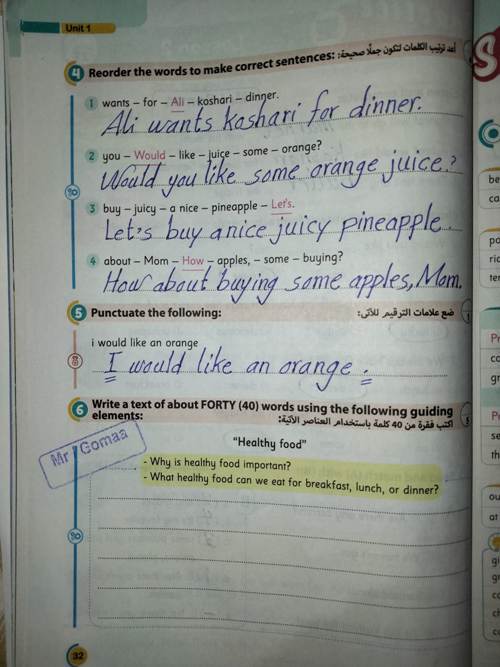 Unit 1
أعد ترتيب الكلمات لتكون جملًا صحيحة:
4 Reorder the words to make correct sentences:
1 wants – for – Ali – koshari – dinner.
Ali wants koshari for dinner.
2 you – Would – like – juice – some – orange?
Would you like some orange juice?
3 buy – juicy – a nice – pineapple – Let's.
Let's buy a nice juicy pineapple.
4 about – Mom – How – apples, – some – buying?
How about buying some apples, Mom.
5 Punctuate the following: ضع علامات الترقيم للآتى:
i would like an orange
I would like an orange.
6 Write a text of about FORTY (40) words using the following guiding
elements: اكتب فقرة من 40 كلمة باستخدام العناصر الآتية:
"Healthy food"
Mr Gomaa
- Why is healthy food important?
- What healthy food can we eat for breakfast, lunch, or dinner?
32